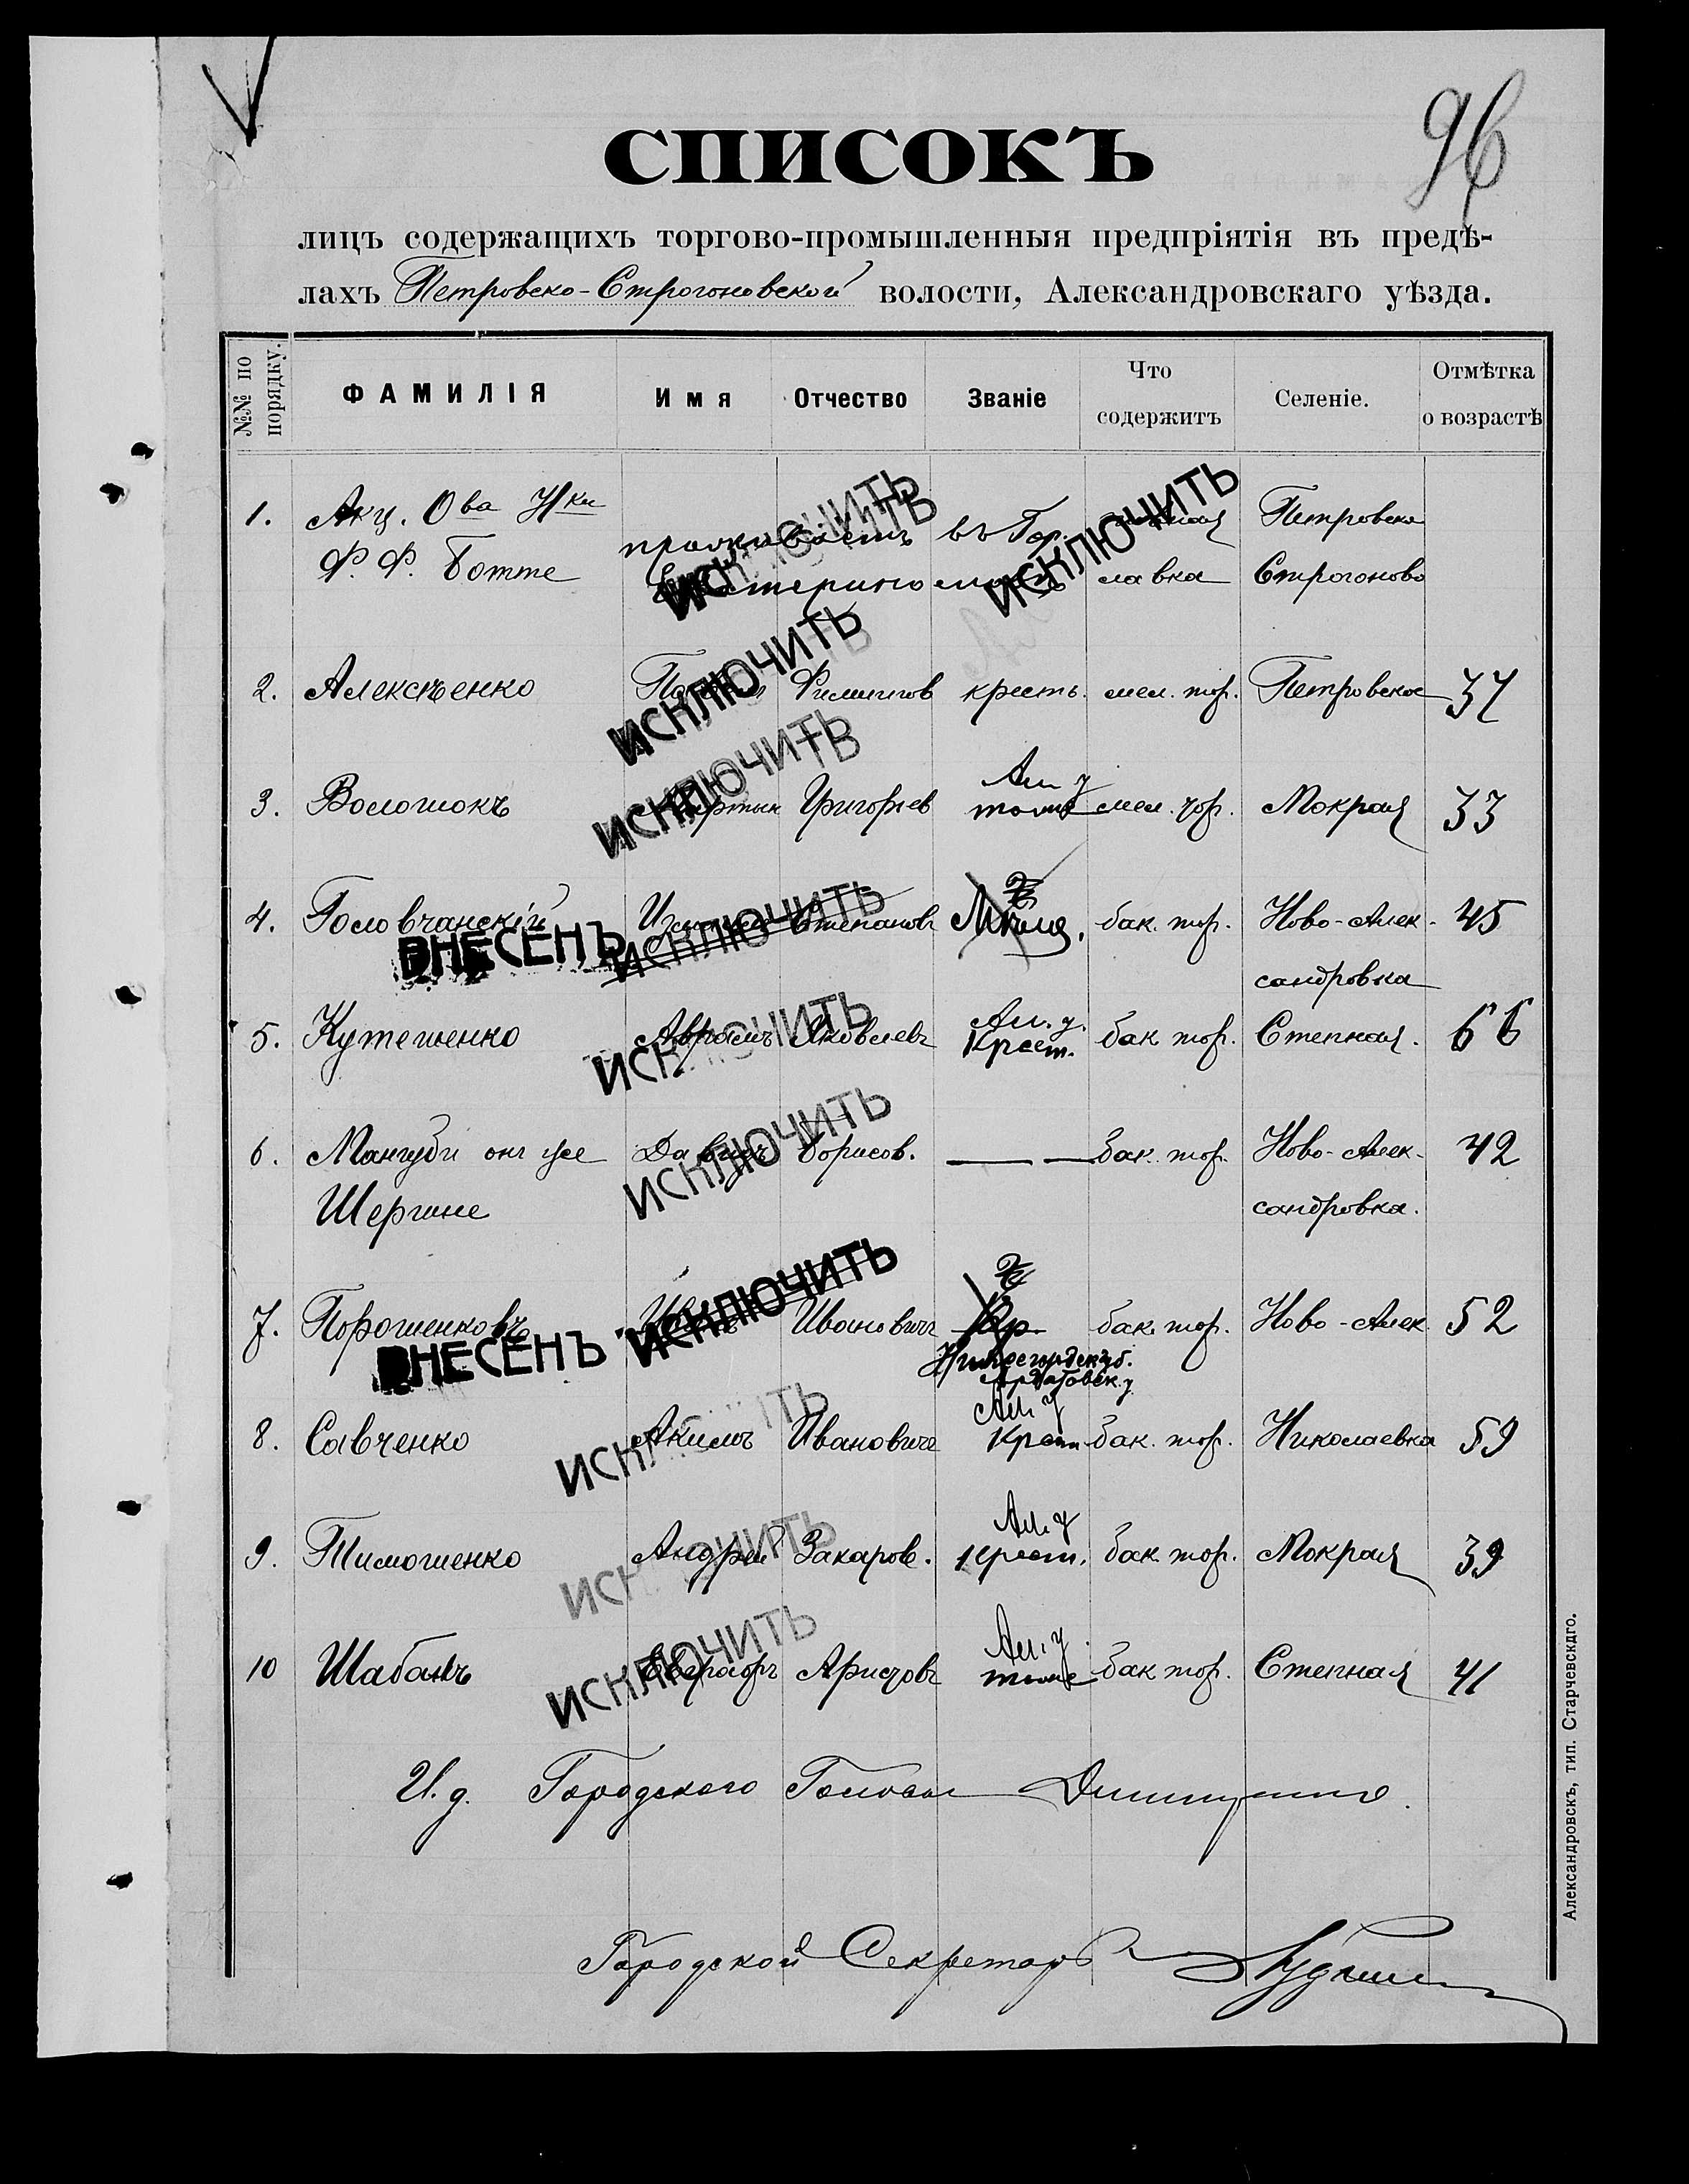 96
СПИСОКЪ
лицъ содержащихъ торгово-промышленныя предпріятія въ предѣ-
лахъ Петровско-Строгоновской волости, Александровскаго уѣзда.
№№ по порядку. ФАМИЛІЯ Имя Отчество Званіе Что содержитъ Селеніе. Отмѣтка о возрастѣ
1. Акц. О-ва проживаетъ въ Гор. Петровско
Ф. Ф. Ботте лавка Строгоново
ИСКЛЮЧИТЬ ИСКЛЮЧИТЬ
2. Алексѣенко Филиппов крестъ. мел. тор. Петровское 37
ИСКЛЮЧИТЬ
Ал. у
3. Волошокъ Григорьев тоже мел. тор. Мокрая 33
ИСКЛЮЧИТЬ
4. Головчанскій Степановъ бак. тор. Ново-Алек- 45
ВНЕСЕНЪ ИСКЛЮЧИТЬ сандровка
Ал. у.
5. Кутешенко Аврамъ Яковлевъ Крест. бак тор. Степная. 66
ИСКЛЮЧИТЬ
6. Мангуби онъ же Давидъ Борисов. — — бак. тор. Ново-Алек- 42
Шергине сандровка.
ИСКЛЮЧИТЬ
7. Порошенковъ Ивановичъ Кр. бак. тор. Ново-Алек. 52
ВНЕСЕНЪ ИСКЛЮЧИТЬ
Ардатовск. у
Ал. у
8. Савченко Акимъ Ивановичъ Крест бак. тор. Николаевка 59
ИСКЛЮЧИТЬ
Ал. у
9. Тимошенко Андрей Захаров. крест. бак. тор. Мокрая 39
ИСКЛЮЧИТЬ
Ал. у.
10 Шабанъ тоже бак тор. Степная 41
ИСКЛЮЧИТЬ
И. д. Городского Головы
Городской Секретарь
Александровскъ, тип. Старчевскдго.